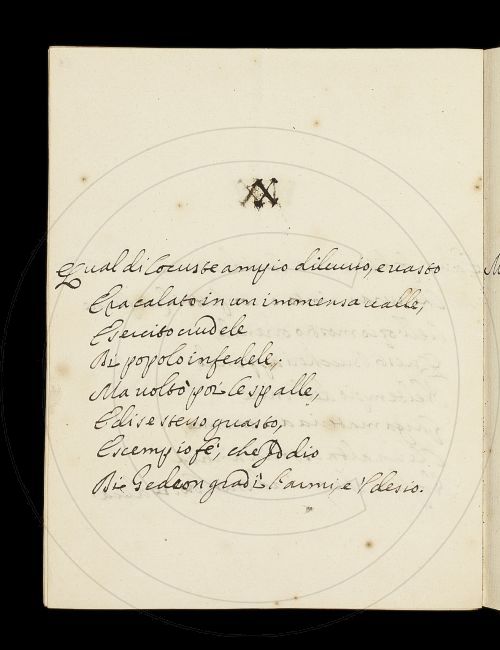 Qual di locuste ampio diluuio, e uasto
Era calato in un' immensa ualle,
Esercito crudele
Di popolo infedele,
Ma voltò poi le spalle,
E di se stesso guasto,
Escempio fè, che Iddio
Di Gedeon gradì l'armi, e 'l desio.